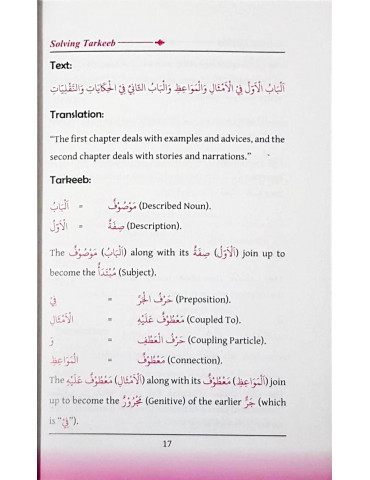 Solving Tarkeeb
Text:
اَلْبَابُ الْاَوَّلُ فِيْ الْاَمْثَالِ وَالْمَوَاعِظِ وَالْبَابُ الثَّانِيْ فِيْ الْحِكَايَاتِ وَالنَّقْلِيَاتِ
Translation:
"The first chapter deals with examples and advices, and the
second chapter deals with stories and narrations."
Tarkeeb:
اَلْبَابُ = مَوْصُوْفٌ (Described Noun).
الْاَوَّلُ = صِفَةٌ (Description).
The مَوْصُوْفٌ (اَلْبَابُ) along with its صِفَةٌ (الْاَوَّلُ) join up to
become the مُبْتَدَأٌ (Subject).
فِيْ = حَرْفُ الْجَرِّ (Preposition).
الْاَمْثَالِ = مَعْطُوْفٌ عَلَيْهِ (Coupled To).
وَ = حَرْفُ الْعَطْفِ (Coupling Particle).
الْمَوَاعِظِ = مَعْطُوْفٌ (Connection).
The مَعْطُوْفٌ عَلَيْهِ (الْاَمْثَالِ) along with its مَعْطُوْفٌ (اَلْمَوَاعِظِ) join
up to become the مَجْرُوْرٌ (Genitive) of the earlier جَرٌّ (which
is "فِيْ").
17